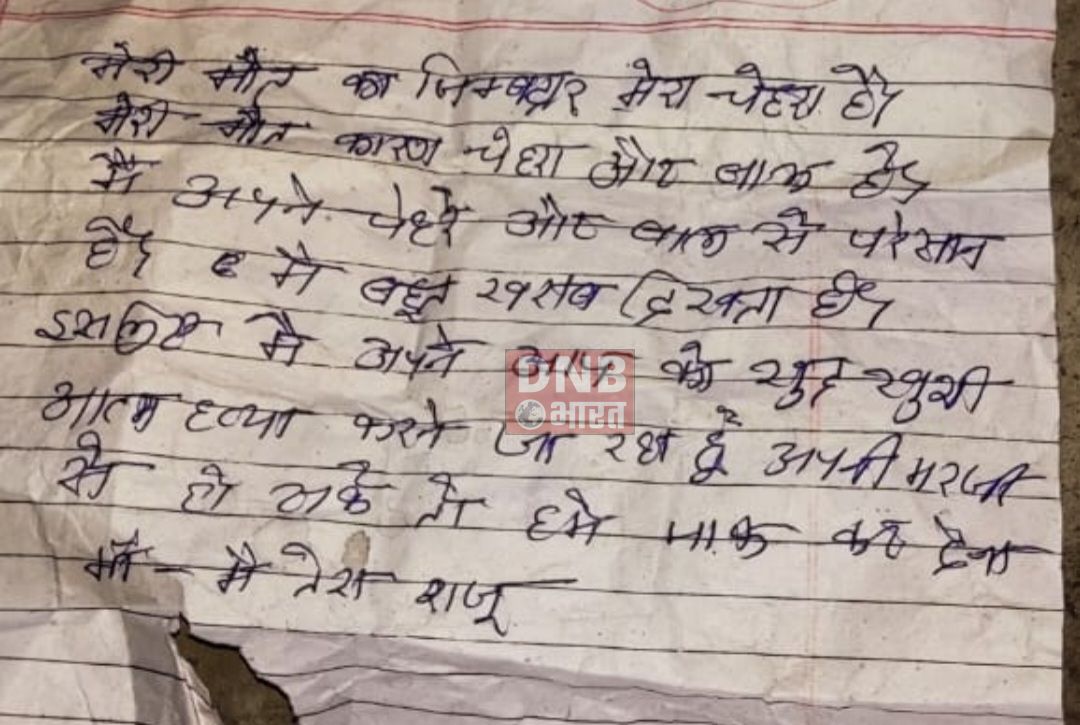 मेरी मौत का जिम्बदार मेरा चेहरा है।
मेरा मौत कारण चेहरा और बाल है।
मै अपने चेहरे और बाल से परेसान
है। मै बहुत खराब दिखता है।
इसलिए मै अपने आप को खुद खुशी
DNB
भारत
आत्म हत्या करने जा रहा हूँ अपनी मरजी
से हो सके तो हमे माफ कर देना
माँ - मै तेरा राजू